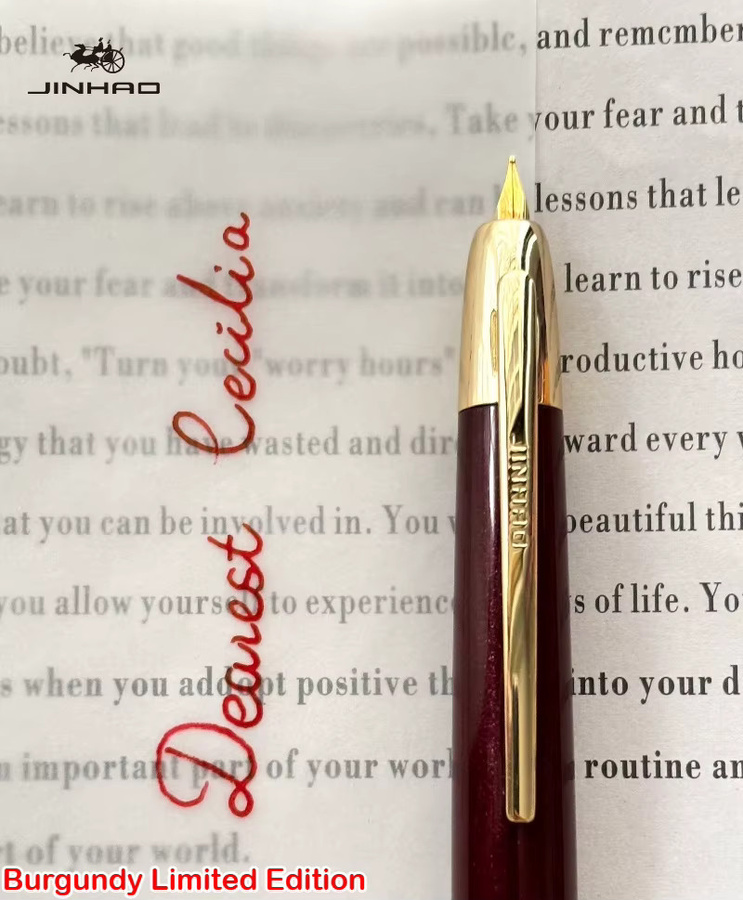 JINHAO
believe that good things are possible, and remcmber
essons that lead to discoveries. Take your fear and t
earn to rise above anxiety and can lessons that le
e your fear and transform it into learn to rise
oubt, "Turn your "worry hours" roductive ho
gy that you have wasted and dir ward every
at you can be involved in. You beautiful thi
you allow yourself to experience s of life. Yo
s when you addopt positive th into your d
n important part of your worl routine an
t of your world.
Dearest Cecilia
JINHAO
Burgundy Limited Edition